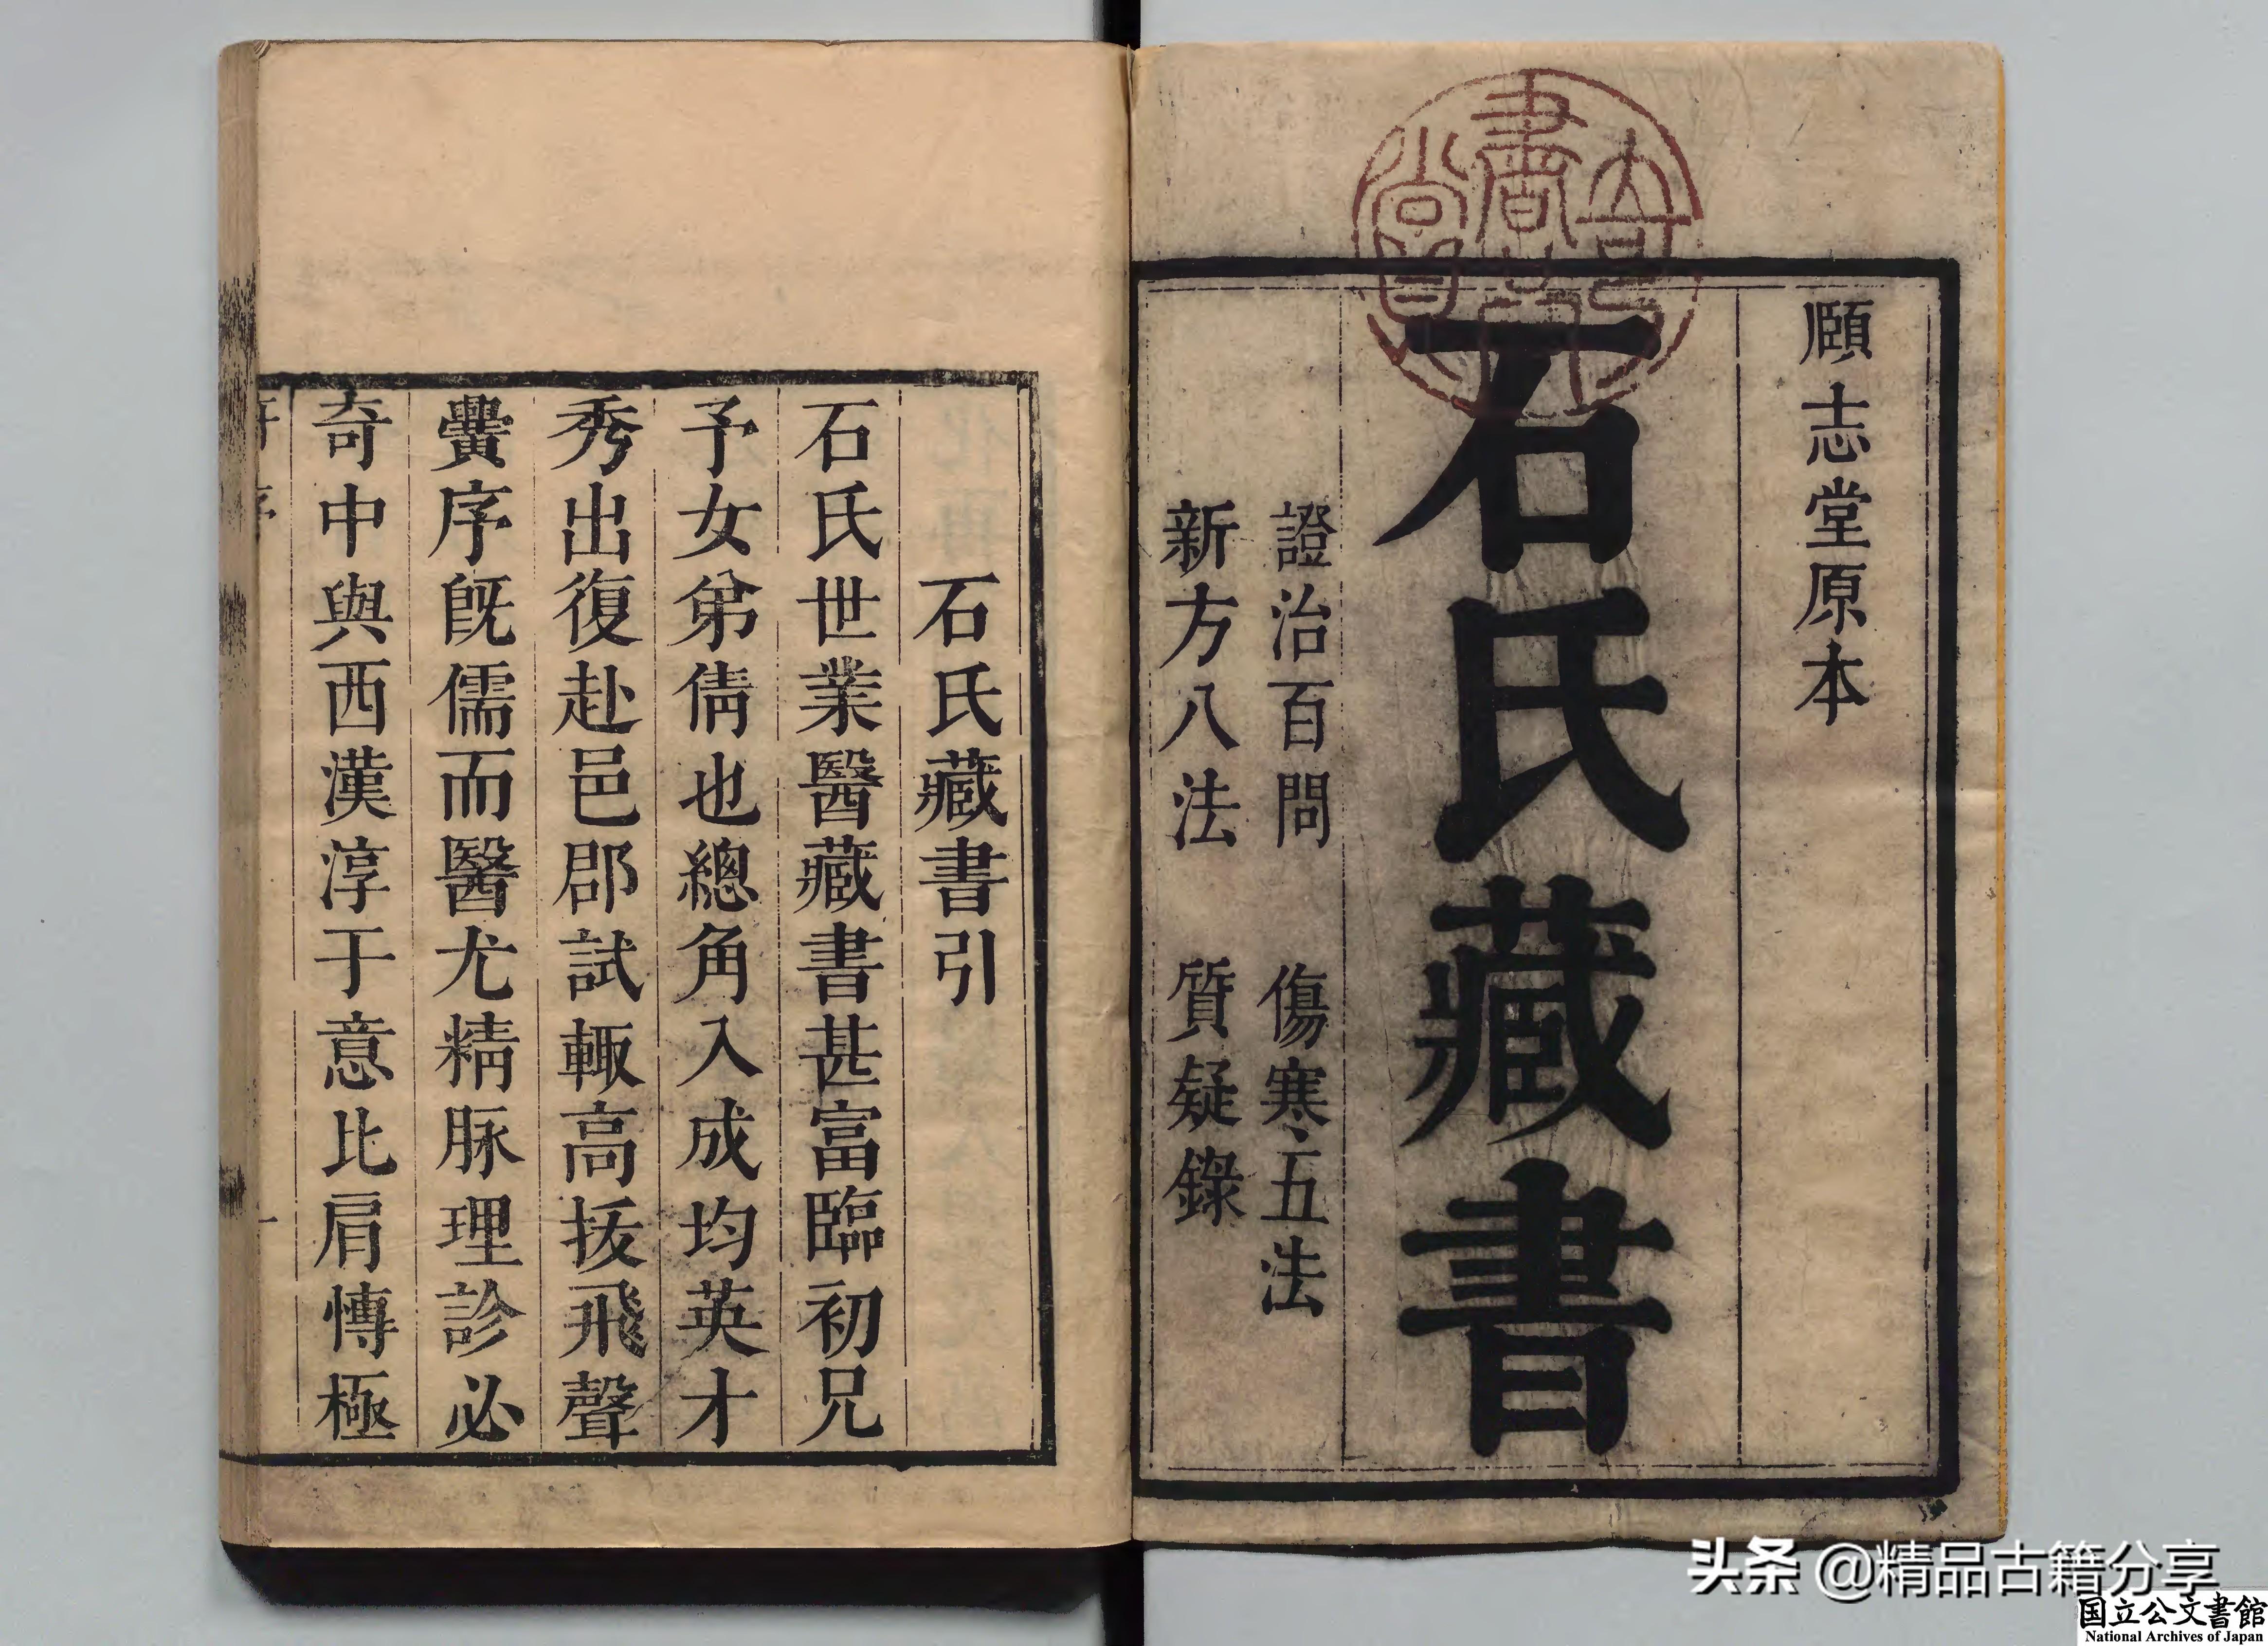 頤志堂原本
石氏藏書
證治百問　傷寒五法
新方八法　質疑錄
石氏藏書引
石氏世業醫藏書甚富臨初兄
予女弟倩也總角入成均英才
秀出復赴邑郡試輙高拔飛聲
黌序旣儒而醫尤精脉理診必
奇中與西漢淳于意比肩慱極
头条 @精品古籍分享
国立公文書館
National Archives of Japan